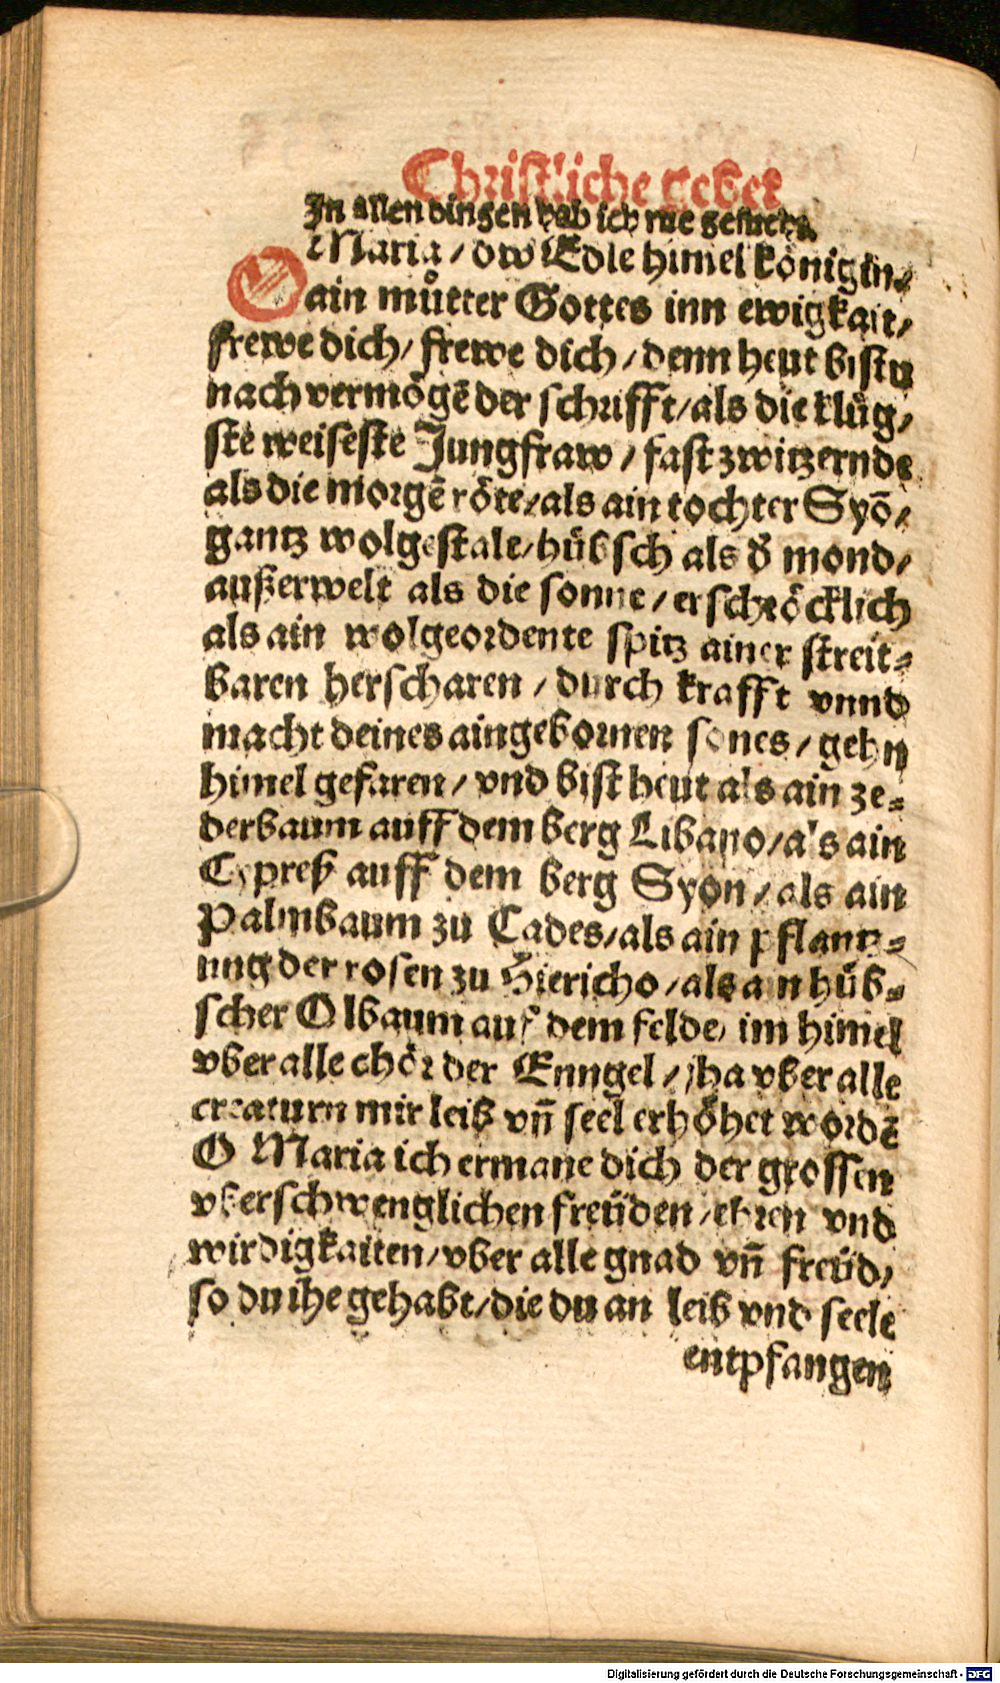 Christliche gebet
In allen dingen hab ich rue gesucht.
O Maria / dw Edle himel königin /
ain můtter Gottes inn ewigkait /
frewe dich / frewe dich / denn heut bistu
nach vermögē der schrifft / als die klüg /
ste weiseste Jungfraw / fast zwitzernde
als die morgē röte / als ain tochter Syō /
gantz wolgestalt / hübsch als d̓ mond /
außerwelt als die sonne / erschröcklich
als ain wolgeordente spitz ainer streit⸗
baren herscharen / durch krafft vnnd
macht deines aingebornen sones / gehn
himel gefaren / vnd bist heut als ain ze⸗
derbaum auff dem berg Libano / als ain
Cypreß auff dem berg Syon / als ain
Palmbaum zu Cades / als ain pflantz⸗
ung der rosen zu Hiericho / als ain hüb⸗
scher Olbaum auf dem felde / im himel
vber alle chör der Enngel / jha vber alle
creaturn mit leib vn̄ seel erhöhet wordē
O Maria ich ermane dich der grossen
vberschwenglichen freüden / ehren vnd
wirdigkaiten / vber alle gnad vn̄ freüd /
so du ihe gehabt / die du an leib vnd seele
entpfangen
Digitalisierung gefördert durch die Deutsche Forschungsgemeinschaft - DFG